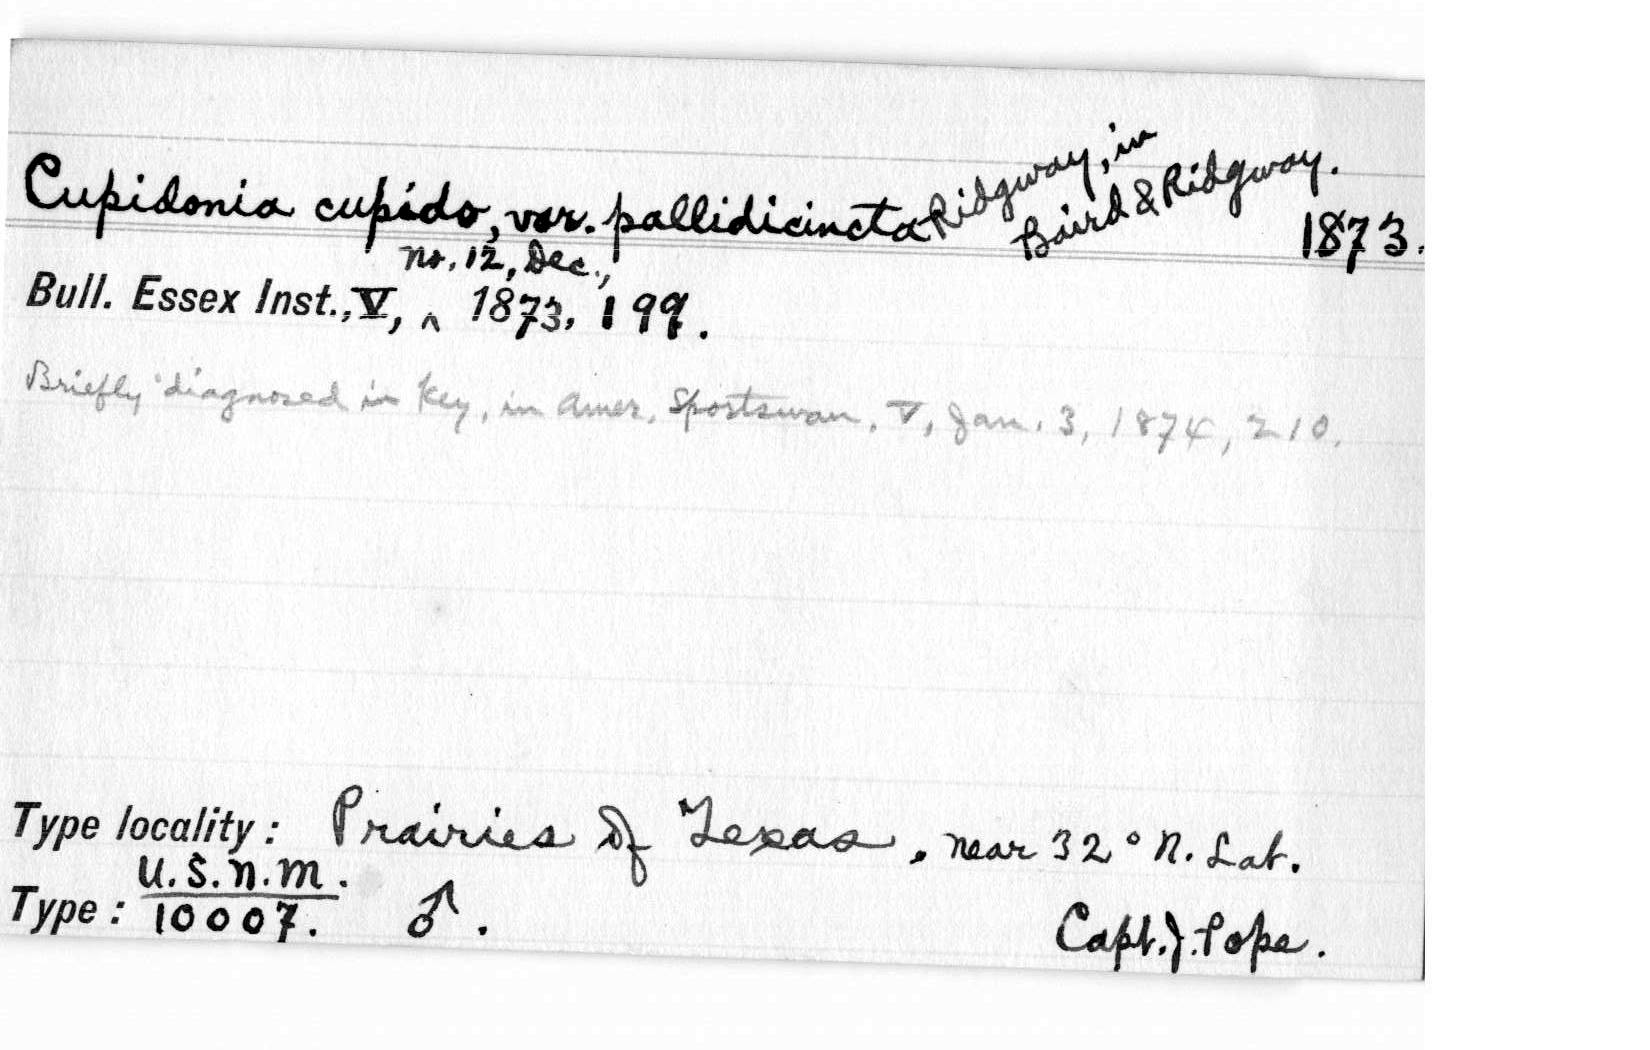 Cupidonia cupido, var. pallidicincta Ridgway, in
Baird & Ridgway.
1873.
no. 12, Dec.,
Bull. Essex Inst., V, ^ 1873, 199.
Briefly diagnosed in key, in Amer. Sportsman, V, Jan. 3, 1874, 210.
Type locality: Prairies of Texas, near 32° N. Lat.
U.S.N.M.
Type: 10007. ♂. Capt. J. Pope.